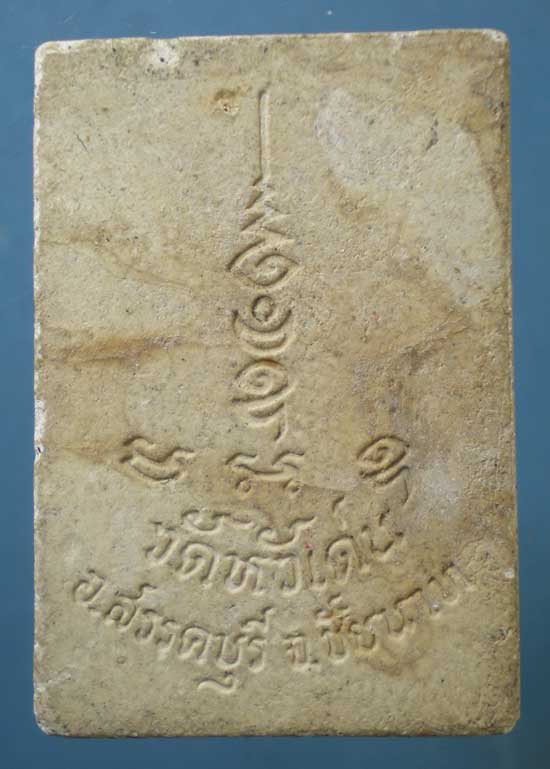 วัดหัวเด่น
อ.สรรคบุรี จ.ชัยนาท